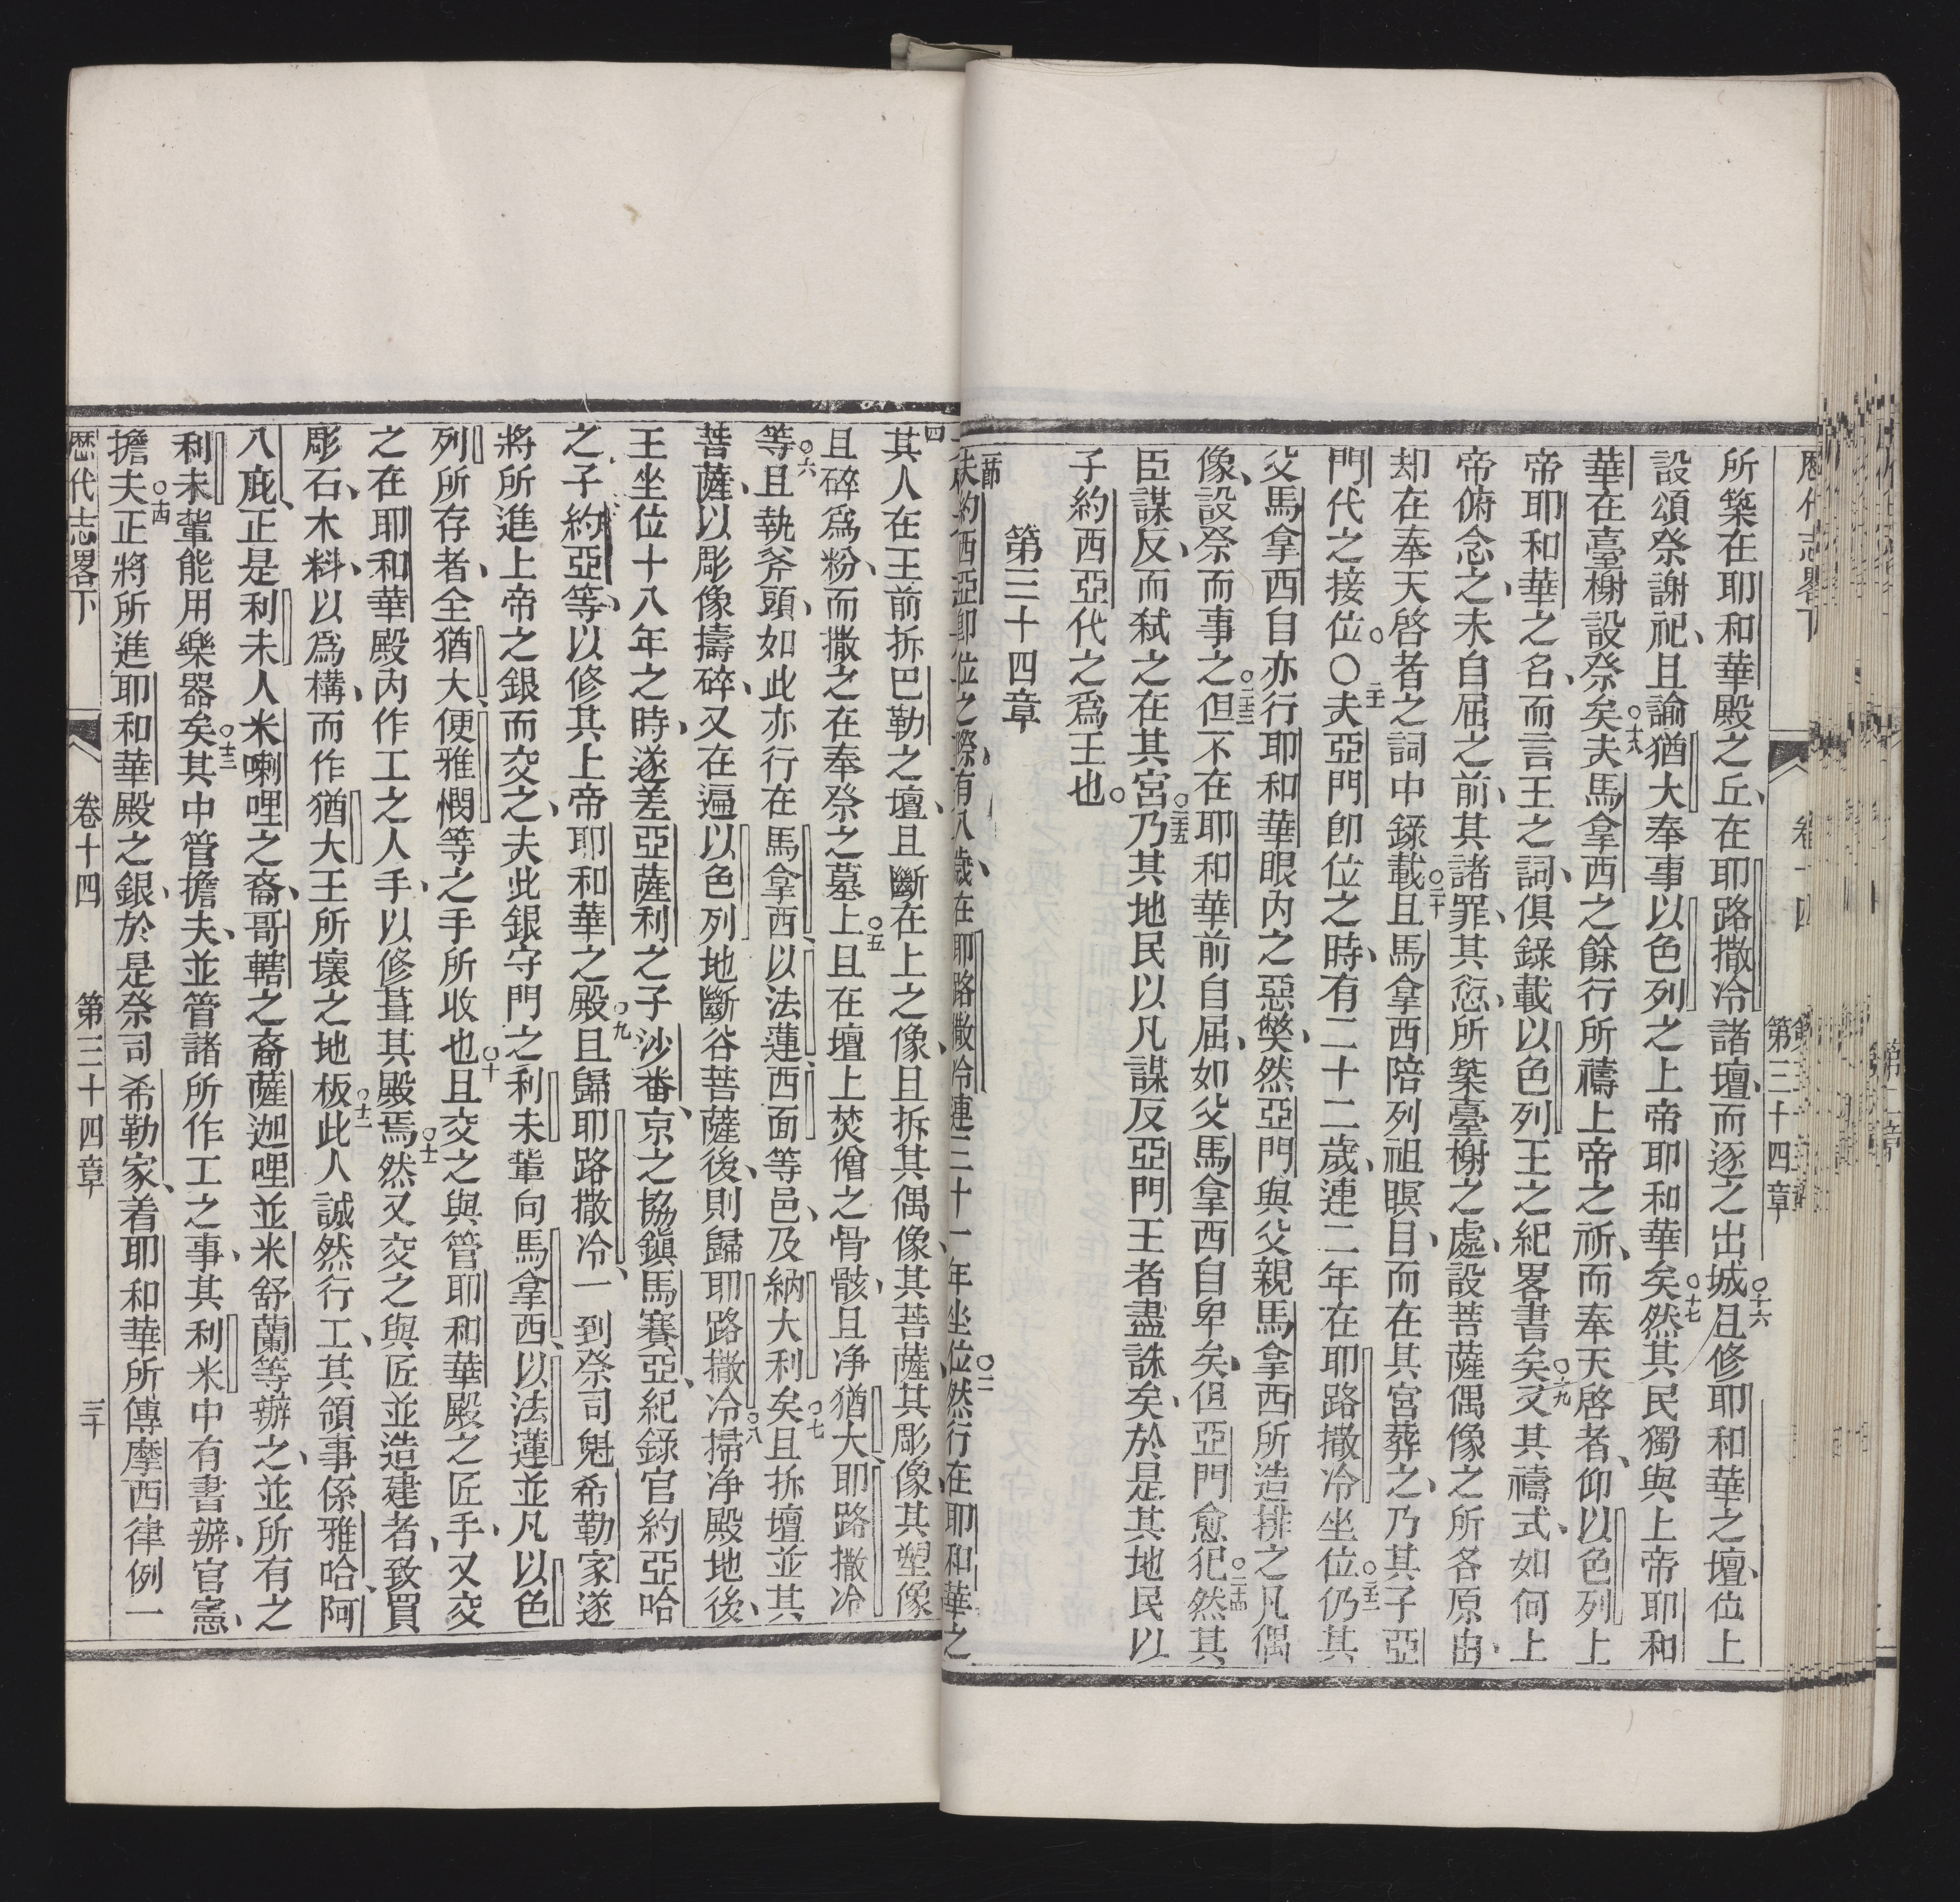 歷代志畧下　卷十四　第三十四章
所築在耶和華殿之丘、在耶路撒冷諸壇、而逐之出城○十六且修耶和華之壇、位上
設頌祭謝祀、且諭猶大奉事以色列之上帝耶和華矣○十七然其民獨與上帝耶和
華在臺榭設祭矣○十八夫馬拿西之餘行所禱上帝之祈、而奉天啓者、仰以色列上
帝耶和華之名、而言王之詞、俱錄載以色列王之紀畧書矣○十九又其禱式、如何上
帝俯念之、未自屈之前、其諸罪、其愆、所築臺榭之處、設菩薩偶像之所各原由、
却在奉天啓者之詞中錄載○二十且馬拿西陪列祖暝目、而在其宮葬之、乃其子亞
門代之接位。○二十一夫亞門卽位之時、有二十二歲、連二年在耶路撒冷坐位○二十二仍其
父馬拿西自亦行耶和華眼内之惡獘、然亞門與父親馬拿西所造排之凡偶
像、設祭而事之○二十三但不在耶和華前自屈、如父馬拿西自卑矣、但亞門愈犯○二十四然其
臣謀反、而弑之在其宮○二十五乃其地民以凡謀反亞門王者盡誅矣、於是其地民以
子約西亞代之爲王也。
第三十四章
一節夫約西亞卽位之際、有八歲、在耶路撒冷連三十一年坐位○二然行在耶和華之
四其人在王前拆巴勒之壇、且斷在上之像、且拆其偶像、其菩薩、其彫像、其塑像
且碎爲粉、而撒之在奉祭之墓上○五且在壇上焚僧之骨骸、且净猶大、耶路撒冷
等○六且執斧頭、如此亦行在馬拿西、以法蓮、西面等邑、及納大利矣○七且拆壇並其
菩薩、以彫像擣碎、又在遍以色列地斷谷菩薩後、則歸耶路撒冷○八掃净殿地後、
王坐位十八年之時、遂差亞薩利之子沙番、京之協鎭馬賽亞、紀錄官約亞哈
之子約亞等、以修其上帝耶和華之殿○九且歸耶路撒冷、一到祭司魁希勒家、遂
將所進上帝之銀而交之、夫此銀守門之利未輩向馬拿西、以法蓮、並凡以色
列所存者、全猶大、便雅憫等之手所收也○十且交之與管耶和華殿之匠手、又交
之在耶和華殿内作工之人手、以修葺其殿焉○十一然又交之與匠並造建者、致買
彫石、木料、以爲構、而作猶大王所壞之地板○十二此人誠然行工、其領事係雅哈、阿
八庇、正是利未人米喇哩之裔、哥轄之裔薩迦哩並米舒蘭等辦之、並所有之
利未輩能用樂器矣○十三其中管擔夫、並管諸所作工之事、其利未中有書辦、官憲、
擔夫○十四正將所進耶和華殿之銀、於是祭司希勒家、着耶和華所傳摩西律例一
歷代志畧下　卷十四　第三十四章　三十